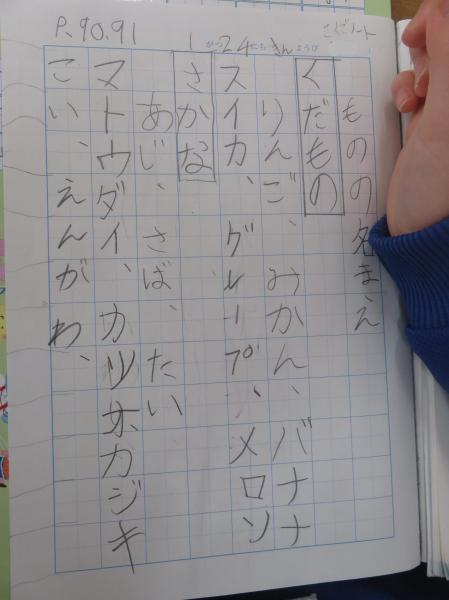 こくごノート
P.90.91
1がつ24にちきんようび
ものの名まえ
くだもの
りんご、みかん、バナナ
スイカ、グレープ、メロン
さかな
あじ、さば、たい
マトウダイ、カツオ、カジキ
こい、えんがわ、